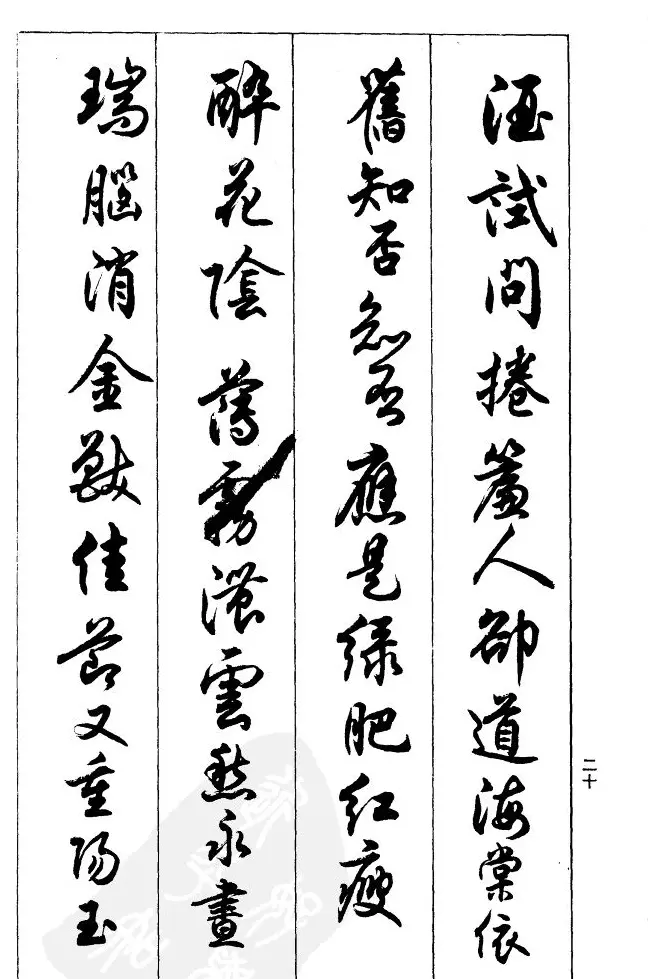 酒試問捲簾人卻道海棠依
舊知否知否應是綠肥紅瘦
醉花陰 薄霧濃雲愁永晝
瑞腦消金獸佳節又重陽玉
二十